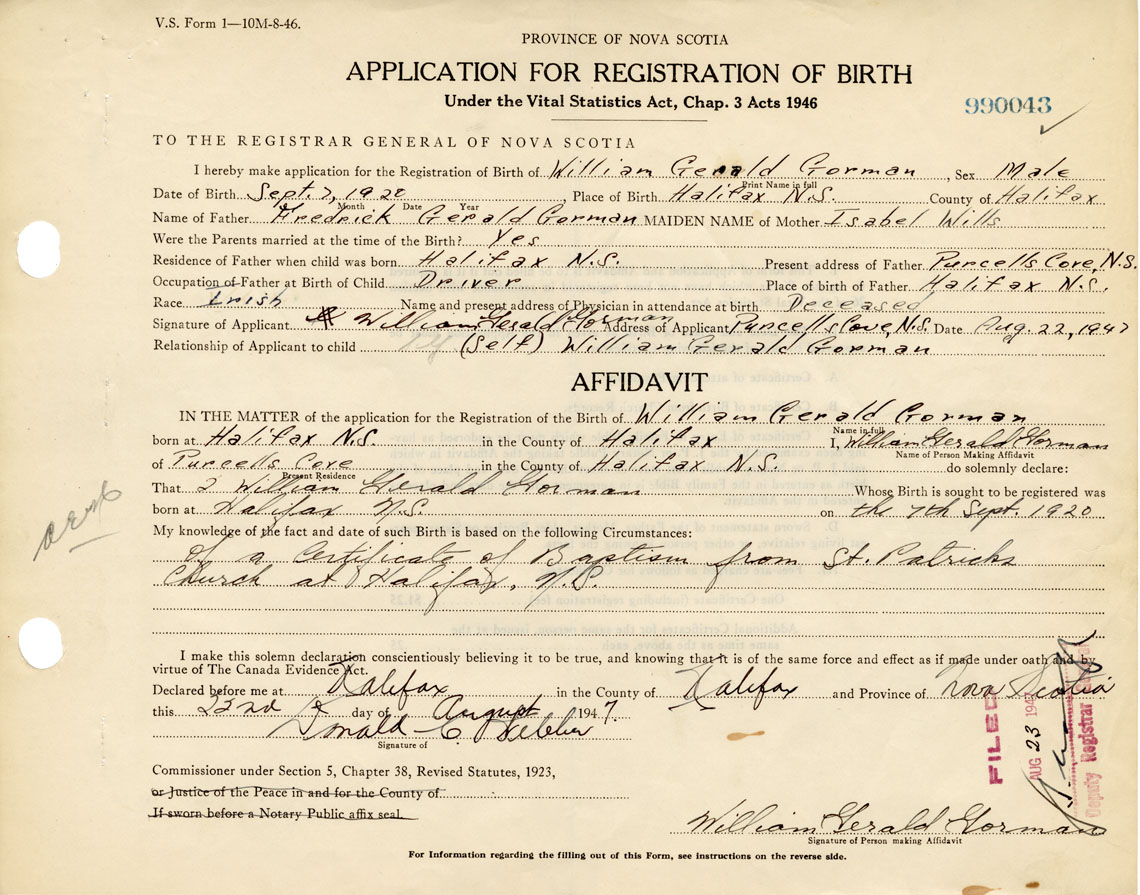 V.S. Form 1—10M-8-46.
PROVINCE OF NOVA SCOTIA
APPLICATION FOR REGISTRATION OF BIRTH
Under the Vital Statistics Act, Chap. 3 Acts 1946
990043
TO THE REGISTRAR GENERAL OF NOVA SCOTIA
I hereby make application for the Registration of Birth of William Gerald Gorman, Sex Male
Print Name in full
Date of Birth Sept. 7, 1920, Place of Birth Halifax N.S. County of Halifax
Month Date Year
Name of Father Fredrick Gerald Gorman MAIDEN NAME of Mother Isabel Wills
Were the Parents married at the time of the Birth? Yes
Residence of Father when child was born Halifax N.S. Present address of Father Purcells Cove, N.S.
Occupation of Father at Birth of Child Driver Place of birth of Father Halifax N.S.
Race Irish Name and present address of Physician in attendance at birth Deceased
Signature of Applicant William Gerald Gorman Address of Applicant Purcells Cove, N.S. Date Aug. 22, 1947
Relationship of Applicant to child (Self) William Gerald Gorman
AFFIDAVIT
IN THE MATTER of the application for the Registration of the Birth of William Gerald Gorman
Name in full
born at Halifax N.S. in the County of Halifax I, William Gerald Gorman
Name of Person Making Affidavit
of Purcells Cove in the County of Halifax N.S. do solemnly declare:
Present Residence
That I William Gerald Gorman Whose Birth is sought to be registered was
born at Halifax N.S. on the 7th Sept. 1920
My knowledge of the fact and date of such Birth is based on the following Circumstances:
Of a Certificate of Baptism from St. Patricks
Church at Halifax, N.S.
I make this solemn declaration conscientiously believing it to be true, and knowing that it is of the same force and effect as if made under oath and by
virtue of The Canada Evidence Act.
Declared before me at Halifax in the County of Halifax and Province of Nova Scotia
this 22nd day of August 1947.
Donald C
Signature of
Commissioner under Section 5, Chapter 38, Revised Statutes, 1923,
or Justice of the Peace in and for the County of
If sworn before a Notary Public affix seal.
FILED
AUG 23 1947
Deputy Registrar General
William Gerald Gorman
Signature of Person making Affidavit
For Information regarding the filling out of this Form, see instructions on the reverse side.